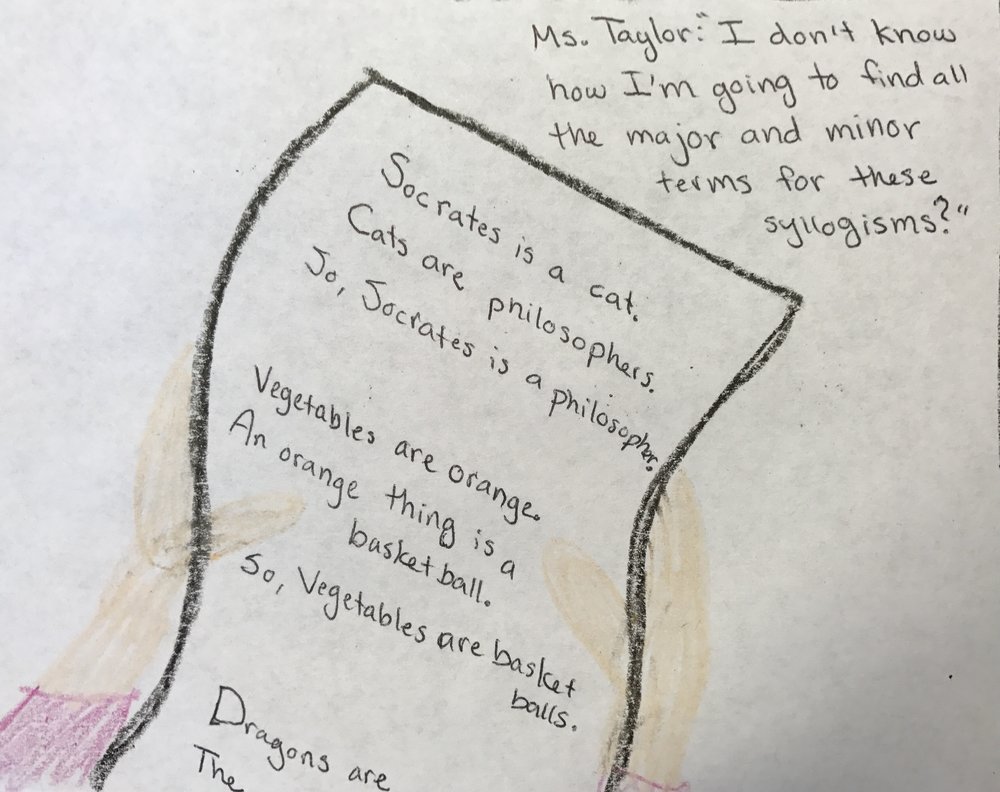 Ms. Taylor: "I don't know
how I'm going to find all
the major and minor
terms for these
syllogisms?"
Socrates is a cat.
Cats are philosophers.
So, Socrates is a philosopher.
Vegetables are orange.
An orange thing is a
basketball.
So, Vegetables are basket
balls.
Dragons are
The